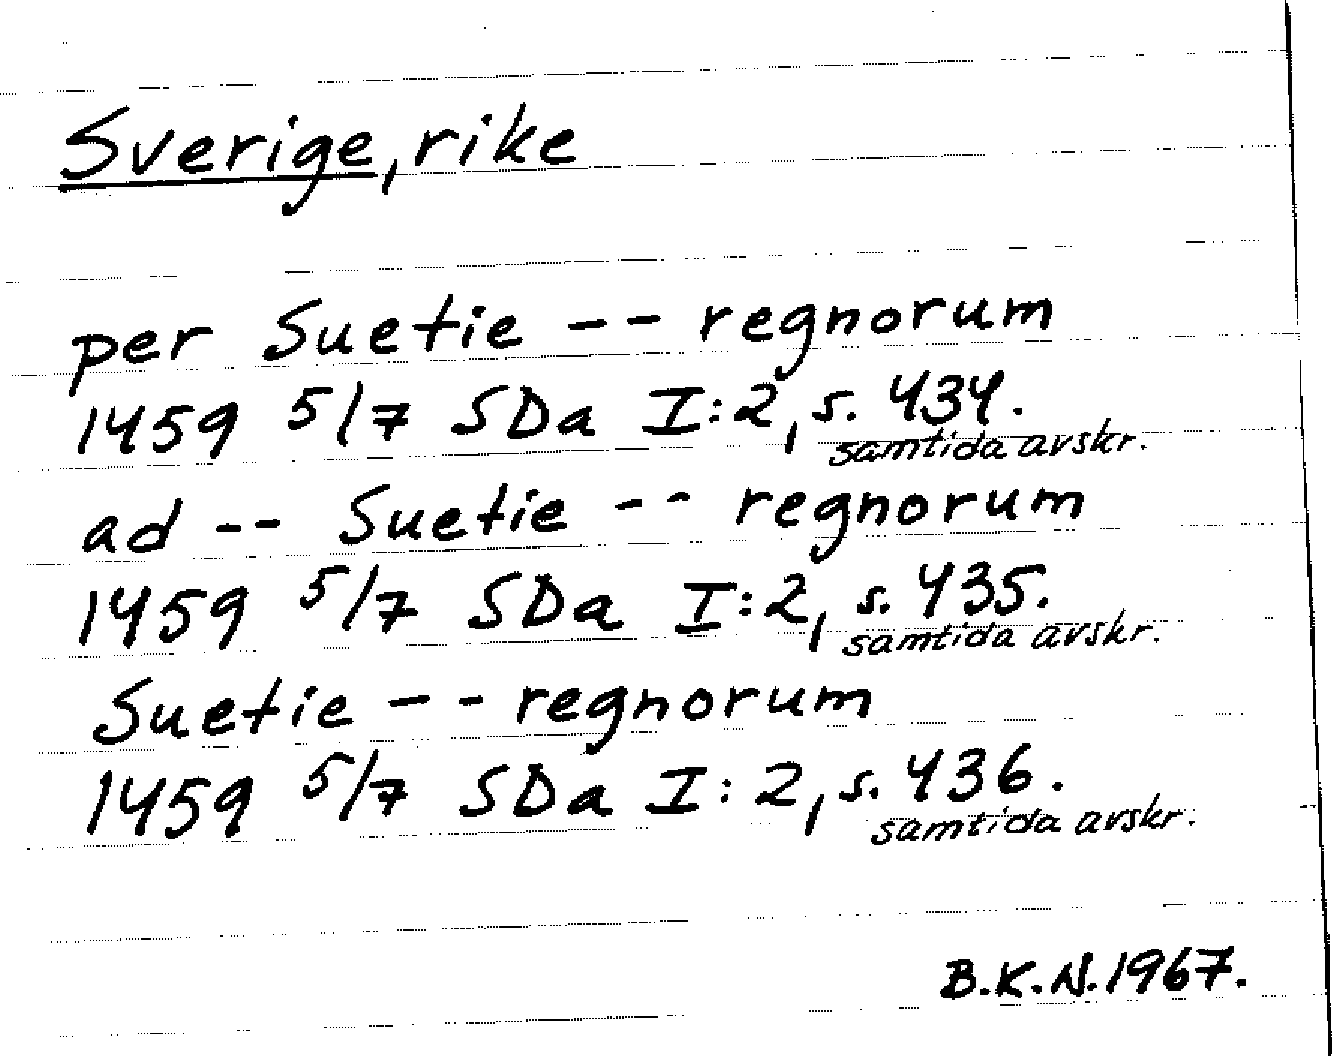 Sverige, rike
per Suetie -- regnorum
1459 5/7 SDa I:2, s. 434.
samtida avskr.
ad -- Suetie -- regnorum
1459 5/7 SDa I:2, s. 435.
samtida avskr.
Suetie -- regnorum
1459 5/7 SDa I:2, s. 436.
samtida avskr.
B.K.N. 1967.